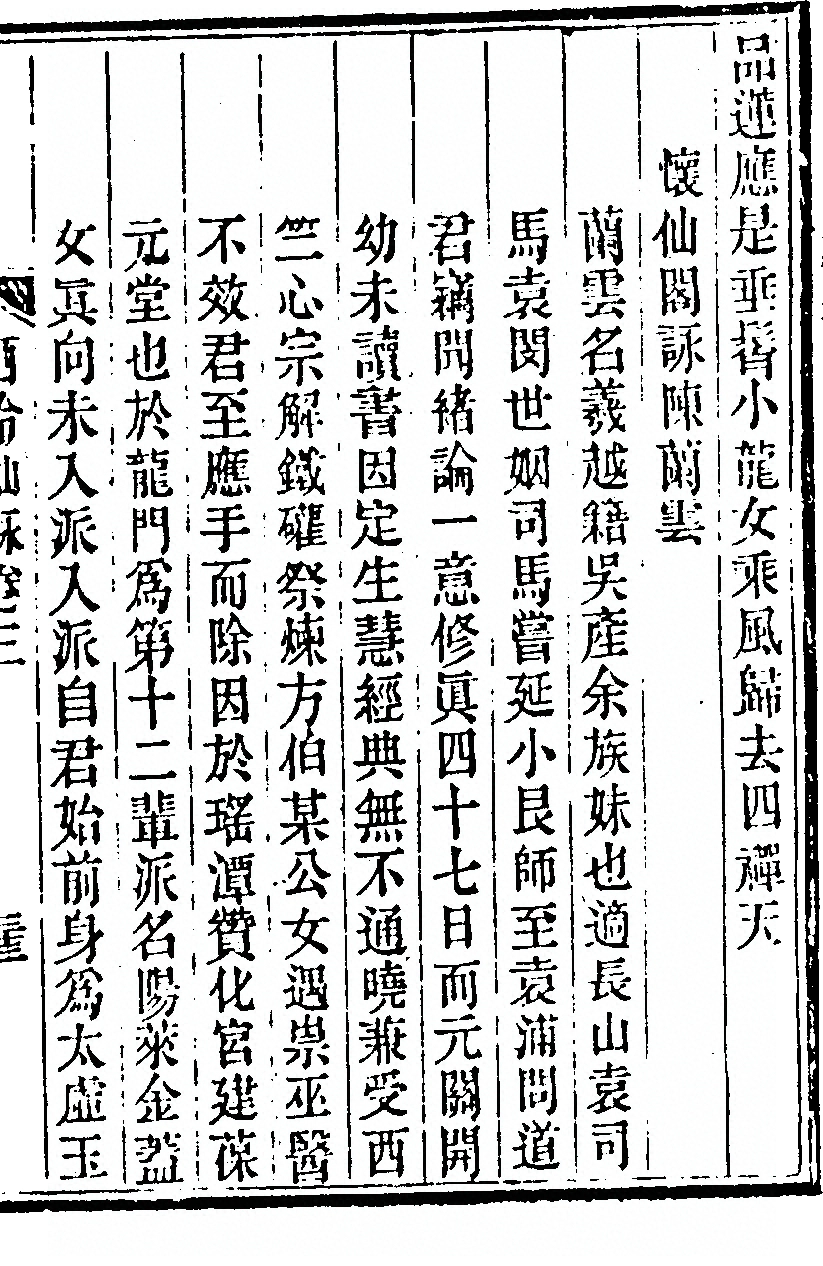 品蓮應是垂髫小龍女乘風歸去四禪天
懷仙閣詠陳蘭雲
蘭雲名羲越籍吳產余族妹也適長山袁司
馬袁閔世姻司馬嘗延小艮師至袁浦問道
君竊聞緒論一意修眞四十七日而元關開
幼未讀書因定生慧經典無不通曉兼受西
竺心宗解鐵礶祭煉方伯某公女遇祟巫醫
不效君至應手而除因於瑤潭贊化宮建葆
元堂也於龍門爲第十二輩派名陽萊金蓋
女眞向未入派入派自君始前身爲太虛玉
西泠仙詠卷三